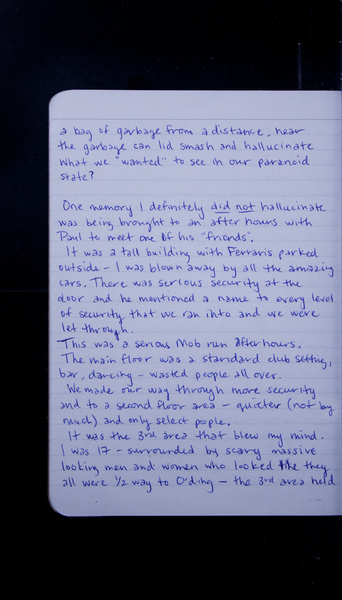 a bag of garbage from a distance, hear
the garbage can lid smash and hallucinate
what we "wanted" to see in our paranoid
state?
One memory I definitely did not hallucinate
was being brought to an after hours with
Paul to meet one of his "friends".
It was a tall building with Ferraris parked
outside - I was blown away by all the amazing
cars. There was serious security at the
door and he mentioned a name to every level
of security that we ran into and we were
let through.
This was a serious Mob run afterhours.
The main floor was a standard club setting,
bar, dancing - wasted people all over.
We made our way through more security
and to a second floor area - quieter (not by
much) and only select people.
It was the 3rd area that blew my mind.
I was 17 - surrounded by scary massive
looking men and women who looked like they
all were 1/2 way to O'ding - the 3rd area held